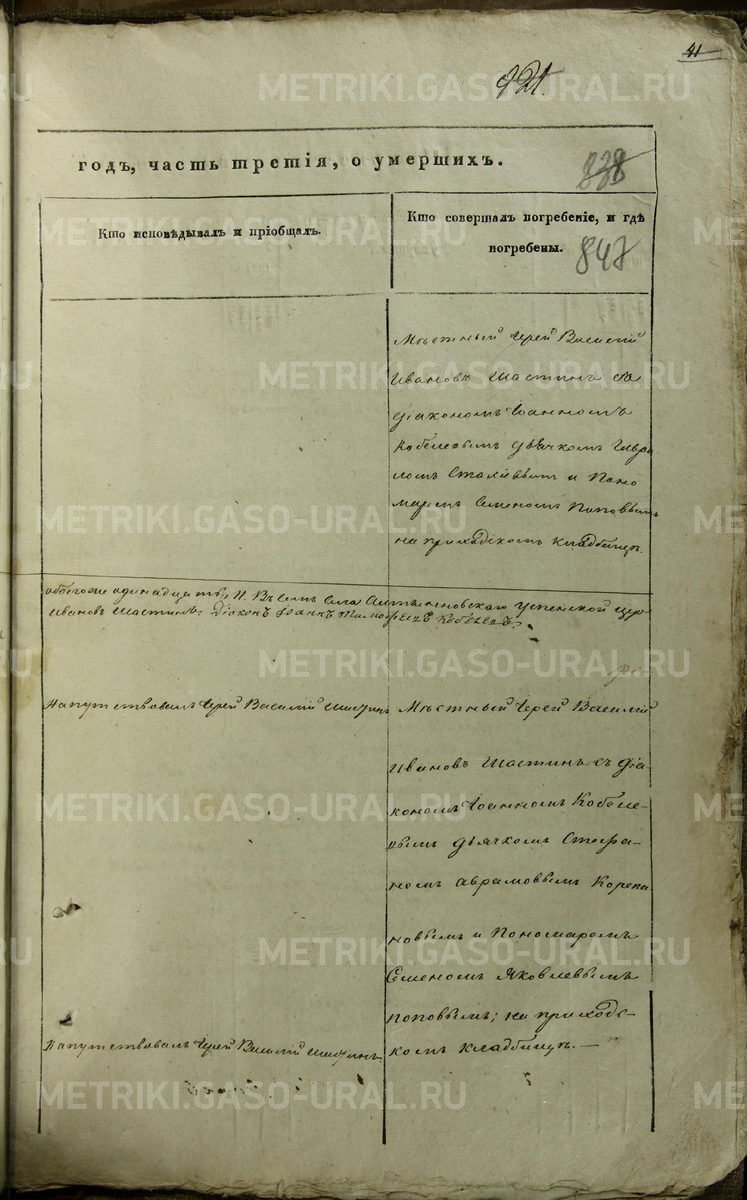 41
921.
METRIKI.GASO-URAL.RU
годъ, часть третія, о умершихъ.
838
Кто исповѣдывалъ и пріобщалъ.
Кто совершалъ погребеніе, и гдѣ
погребены.
847
Мѣстный Іерей Василій
Ивановъ Шастинъ съ
діакономъ Іоанномъ
Кобелевымъ дьячкомъ
и Поно
маремъ Семеномъ Поповымъ
на приходскомъ кладбищѣ.
обоего одинадцать, 11. Въ семъ села Успенской
Ивановъ Шастинъ. Діаконъ Іоаннъ Тимофеевъ Кобелевъ.
Напутствовалъ Іерей Василій Шастинъ
Мѣстный Іерей Василій
Ивановъ Шастинъ съ діа-
кономъ Іоанномъ Кобеле-
вымъ дьячкомъ Стефа-
номъ Аврамовымъ Корепа
новымъ и Пономаромъ
Семеномъ Яковлевымъ
Поповымъ; на приходс-
комъ кладбищѣ. —
Напутствовалъ Іерей Василій Шастинъ